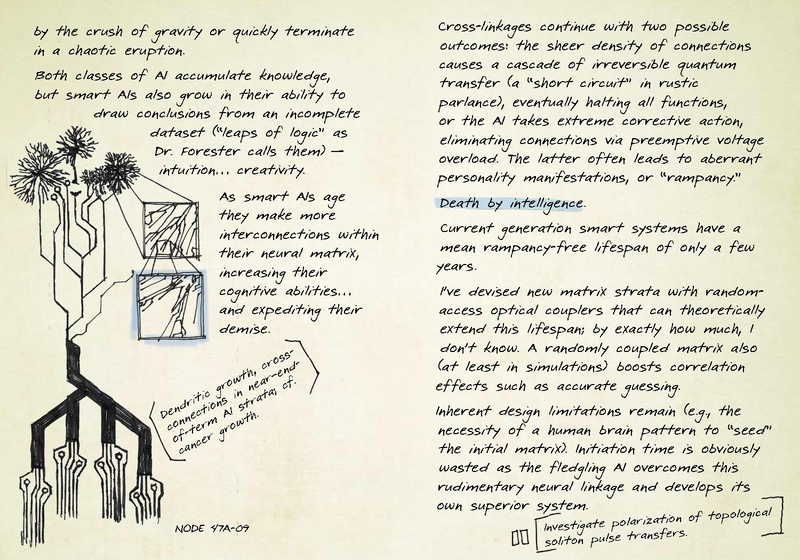 by the crush of gravity or quickly terminate
in a chaotic eruption.
Both classes of AI accumulate knowledge,
but smart AIs also grow in their ability to
draw conclusions from an incomplete
dataset ("leaps of logic" as
Dr. Forester calls them) —
intuition... creativity.
As smart AIs age
they make more
interconnections within
their neural matrix,
increasing their
cognitive abilities...
and expediting their
demise.
Dendritic growth, cross-
connections in near-end-
of-term AI strata; cf.
cancer growth.
NODE 47A-09
Cross-linkages continue with two possible
outcomes: the sheer density of connections
causes a cascade of irreversible quantum
transfer (a "short circuit" in rustic
parlance), eventually halting all functions,
or the AI takes extreme corrective action,
eliminating connections via preemptive voltage
overload. The latter often leads to aberrant
personality manifestations, or "rampancy."
Death by intelligence.
Current generation smart systems have a
mean rampancy-free lifespan of only a few
years.
I've devised new matrix strata with random-
access optical couplers that can theoretically
extend this lifespan; by exactly how much, I
don't know. A randomly coupled matrix also
(at least in simulations) boosts correlation
effects such as accurate guessing.
Inherent design limitations remain (e.g., the
necessity of a human brain pattern to "seed"
the initial matrix). Initiation time is obviously
wasted as the fledgling AI overcomes this
rudimentary neural linkage and develops its
own superior system.
Investigate polarization of topological
soliton pulse transfers.